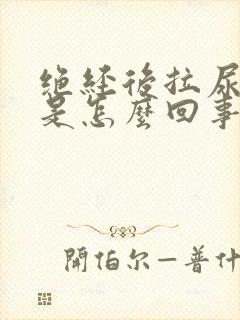 绝经後拉尿
是怎麽回事
開伯尔—普什